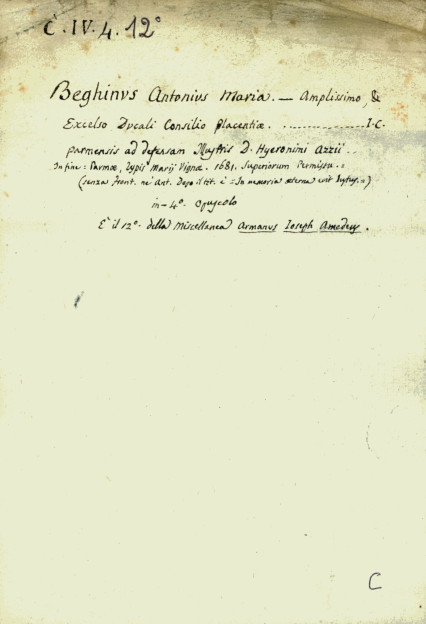 C. IV. 4. 12°
Beghinus Antonius Maria. — Amplissimo, &
Excelso Ducali Consilio Placentiæ. .................. I.C.
parmensis ad defensam Illustris D. Hyeronini Azzii ..
In fine = Parmæ, typis Marij Vignæ. 1681. Superiorum Permissu. =
(senza front. nè ant. Dopo il tit. è = In memoria æterna erit Justus. =)
in - 4° - opuscolo
E' il 12° - della Miscellanea Armanus Ioseph Amedeus.
C